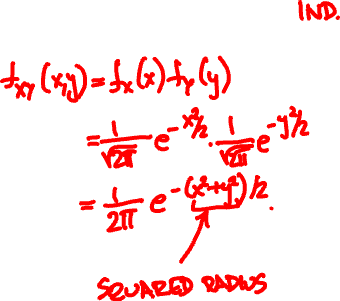 IND.
f_{XY}(x,y) = f_X(x) f_Y(y)
= \frac{1}{\sqrt{2\pi}} e^{-x^2/2} \cdot \frac{1}{\sqrt{2\pi}} e^{-y^2/2}
= \frac{1}{2\pi} e^{-(x^2+y^2)/2}.
SQUARED RADIUS